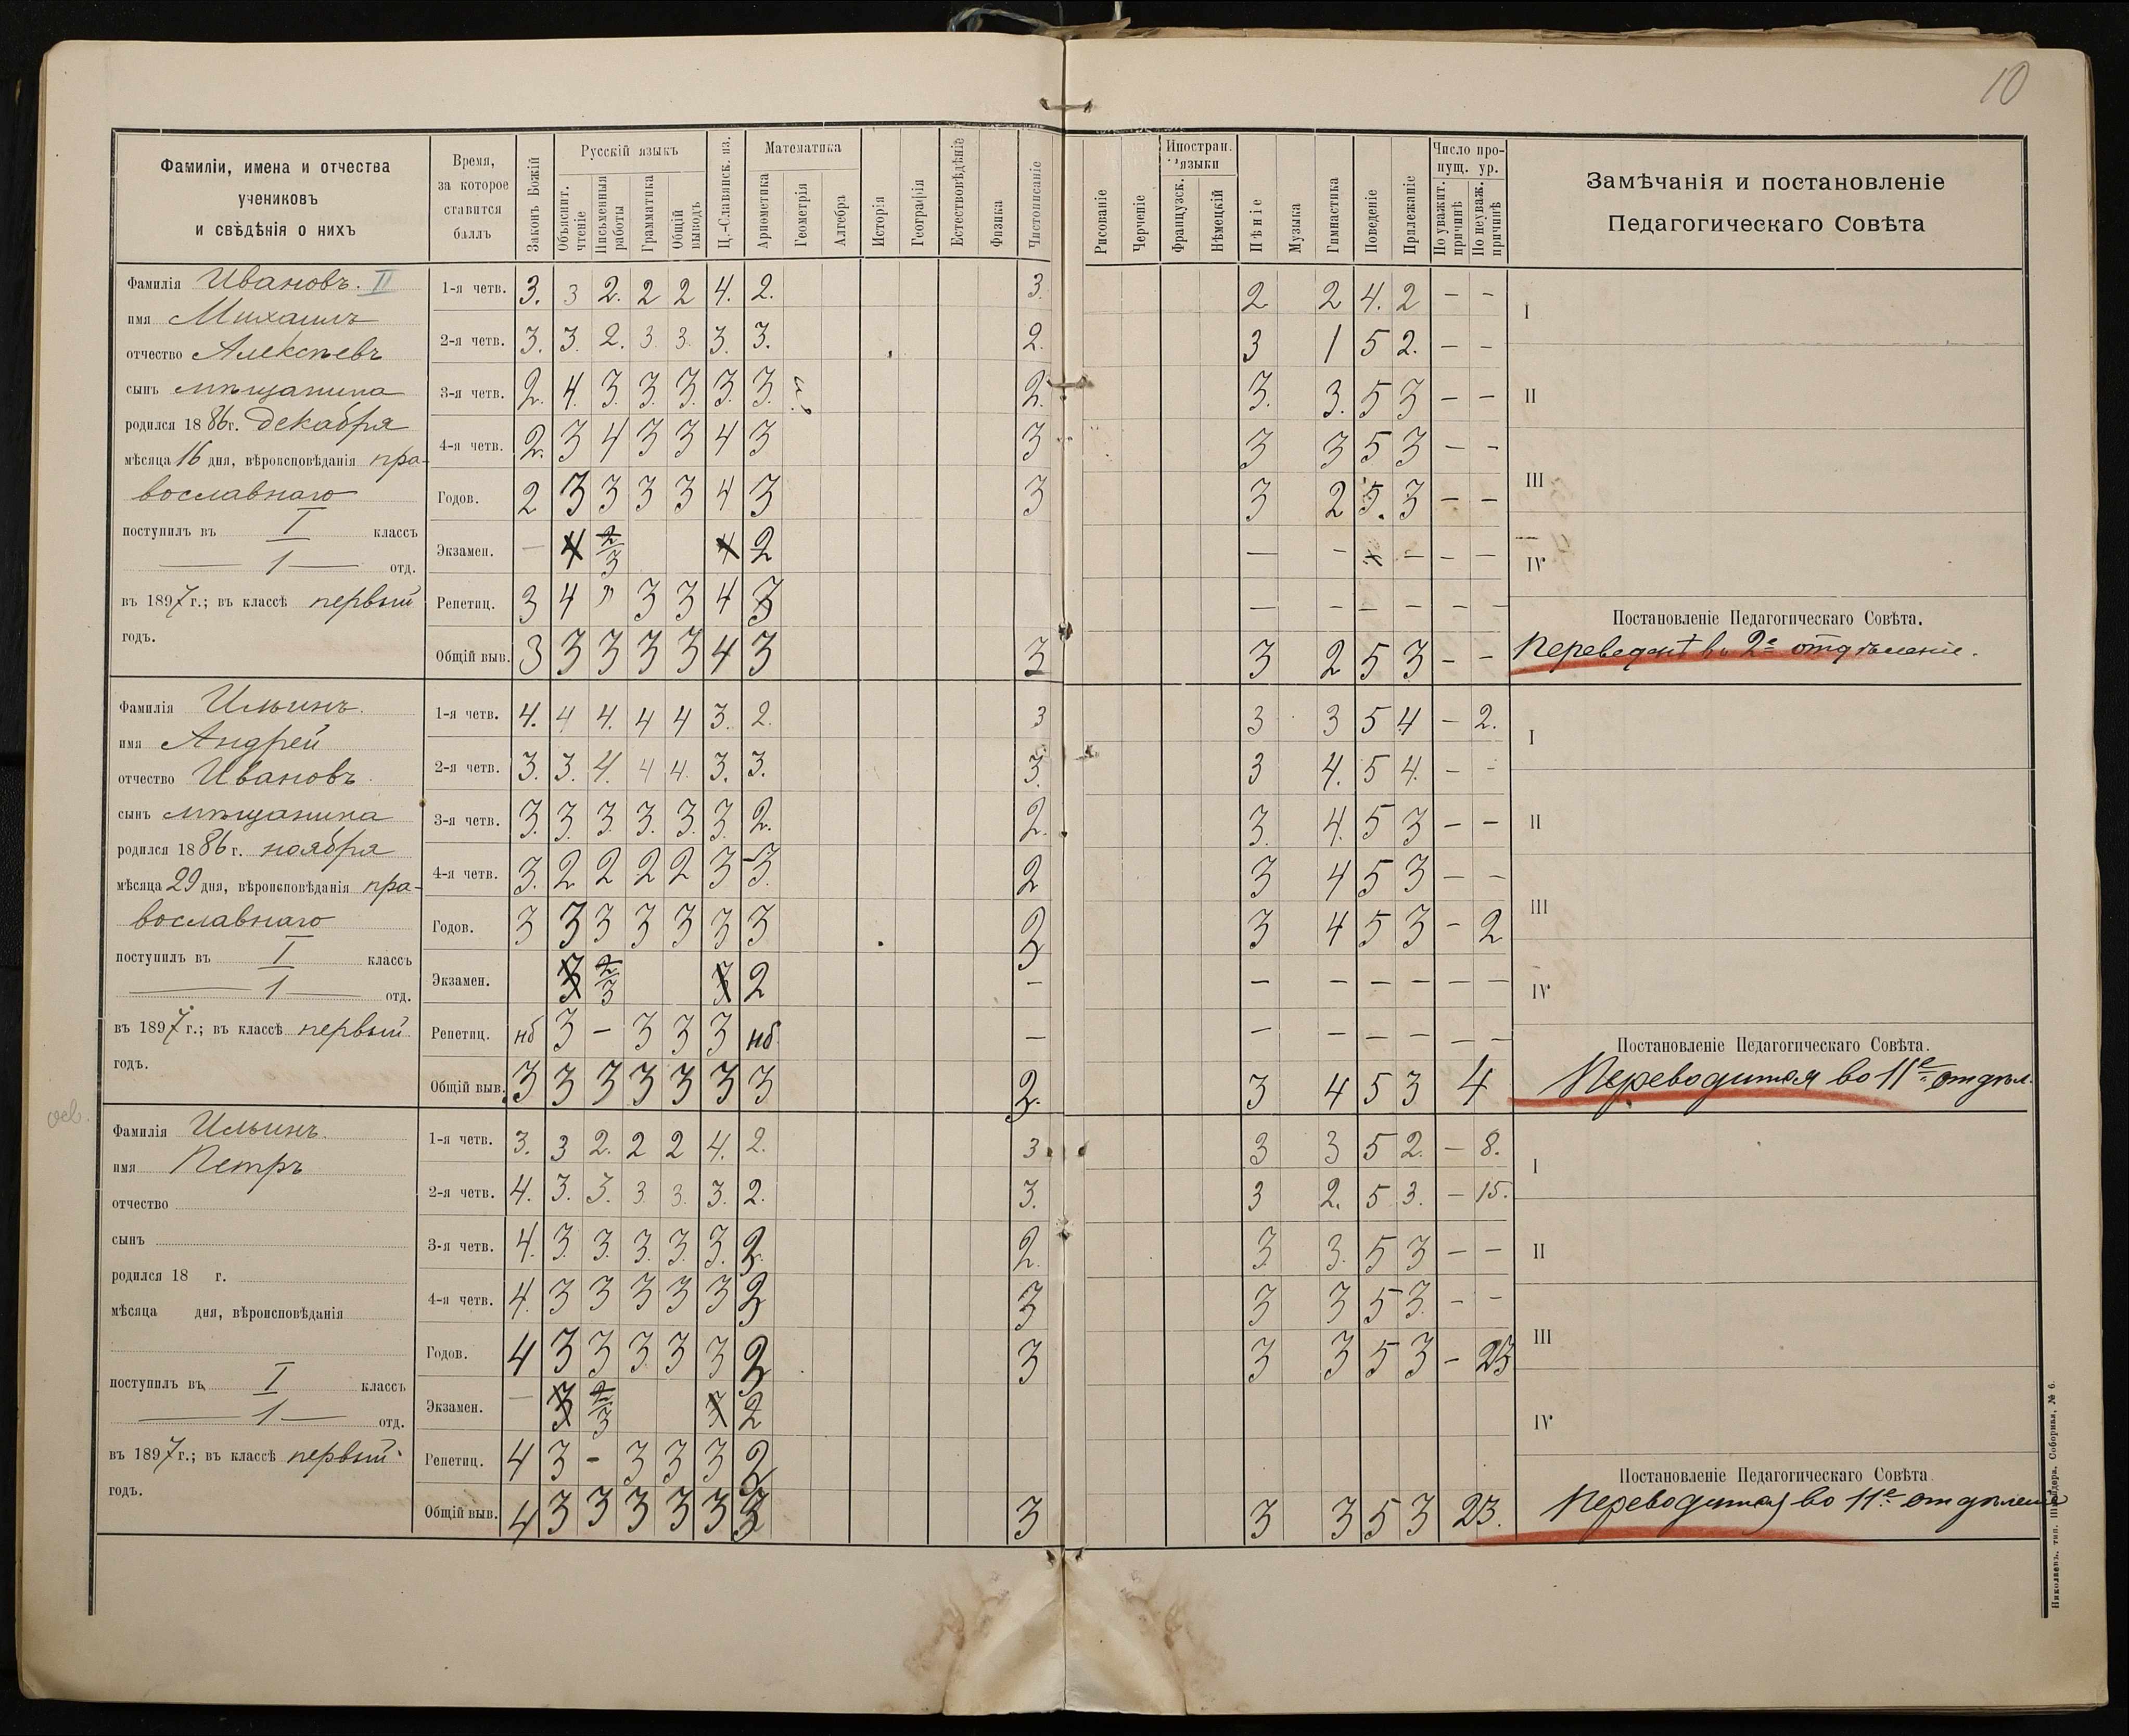 10
Фамиліи, имена и отчества
учениковъ
и свѣдѣнія о нихъ
Время,
за которое
ставится
баллъ
Законъ Божій
Русскій языкъ
Объяснит. чтеніе
Письменныя работы
Грамматика
Общій выводъ
Ц.-Славянск. яз.
Математика
Ариѳметика
Геометрія
Алгебра
Исторія
Географія
Естествовѣдѣніе
Физика
Чистописаніе
Рисованіе
Черченіе
Иностран. языки
Французск.
Нѣмецкій
Пѣніе
Музыка
Гимнастика
Поведеніе
Прилежаніе
Число про-
пущ. ур.
По уважит. причинѣ
По неуваж. причинѣ
Замѣчанія и постановленіе
Педагогическаго Совѣта
Фамилія Ивановъ. II
имя Михаилъ
отчество Алексѣевъ
сынъ мѣщанина
родился 1886 г. декабря
мѣсяца 16 дня, вѣроисповѣданія пра-
вославнаго
поступилъ въ I классъ
1 отд.
въ 1897 г.; въ классѣ первый
годъ.
1-я четв. 3. 3 2. 2 2 4. 2. 3. 2 2 4. 2 — — I
2-я четв. 3. 3. 2. 3. 3. 3. 3. 2. 3 1 5 2. — —
3-я четв. 2. 4. 3. 3. 3. 3. 3. 2. 3. 3. 5 3 — — II
4-я четв. 2. 3 4 3 3 4 3 3 3 3 5 3 — —
Годов. 2 3 3 3 3 4 3 3 3 2 5. 3 — — III
Экзамен. — 4 2/3 4 2 — — — — — — IV
Репетиц. 3 4 " 3 3 4 3 — — — — — —
Постановленіе Педагогическаго Совѣта.
Общій выв. 3 3 3 3 3 4 3 3 3 2 5 3 — — Переведенъ во 2е отдѣленіе.
Фамилія Ильинъ.
имя Андрей
отчество Ивановъ
сынъ мѣщанина
родился 1886 г. ноября
мѣсяца 29 дня, вѣроисповѣданія пра-
вославнаго
поступилъ въ I классъ
1 отд.
въ 1897 г.; въ классѣ первый
годъ.
1-я четв. 4. 4 4. 4 4 3. 2. 3 3 3 5 4 — 2. I
2-я четв. 3. 3. 4. 4 4. 3. 3. 3. 3 4. 5 4. — —
3-я четв. 3. 3. 3. 3. 3. 3. 2. 2. 3. 4. 5 3 — — II
4-я четв. 3. 2 2 2 2 3 3. 2 3 4 5 3 — —
Годов. 3 3 3 3 3 3 3 2 3 4 5 3 — 2 III
Экзамен. 3 2/3 3 2 — — — — — — — IV
Репетиц. нб 3 — 3 3 3 нб — — — — — — —
Постановленіе Педагогическаго Совѣта.
Общій выв. 3 3 3 3 3 3 3 2. 3 4 5 3 4 Переводится во 11е отдѣл.
Фамилія Ильинъ.
имя Петръ
отчество
сынъ
родился 18 г.
мѣсяца дня, вѣроисповѣданія
поступилъ въ I классъ
1 отд.
въ 1897 г.; въ классѣ первый
годъ.
1-я четв. 3. 3 2. 2 2 4. 2. 3 3 3 5 2. — 8. I
2-я четв. 4. 3. 3. 3 3. 3. 2. 3. 3 2. 5 3. — 15.
3-я четв. 4. 3. 3. 3. 3. 3. 2. 2. 3. 3. 5 3 — — II
4-я четв. 4. 3 3 3 3 3 2 3 3 3 5 3. — —
Годов. 4 3 3 3 3 3 2 3 3 3 5 3 — 23 III
Экзамен. — 3 2/3 3 2 IV
Репетиц. 4 3 — 3 3 3 2
Постановленіе Педагогическаго Совѣта.
Общій выв. 4 3 3 3 3 3 3 3 3 3 5 3 23. Переводится во 11е отдѣленіе